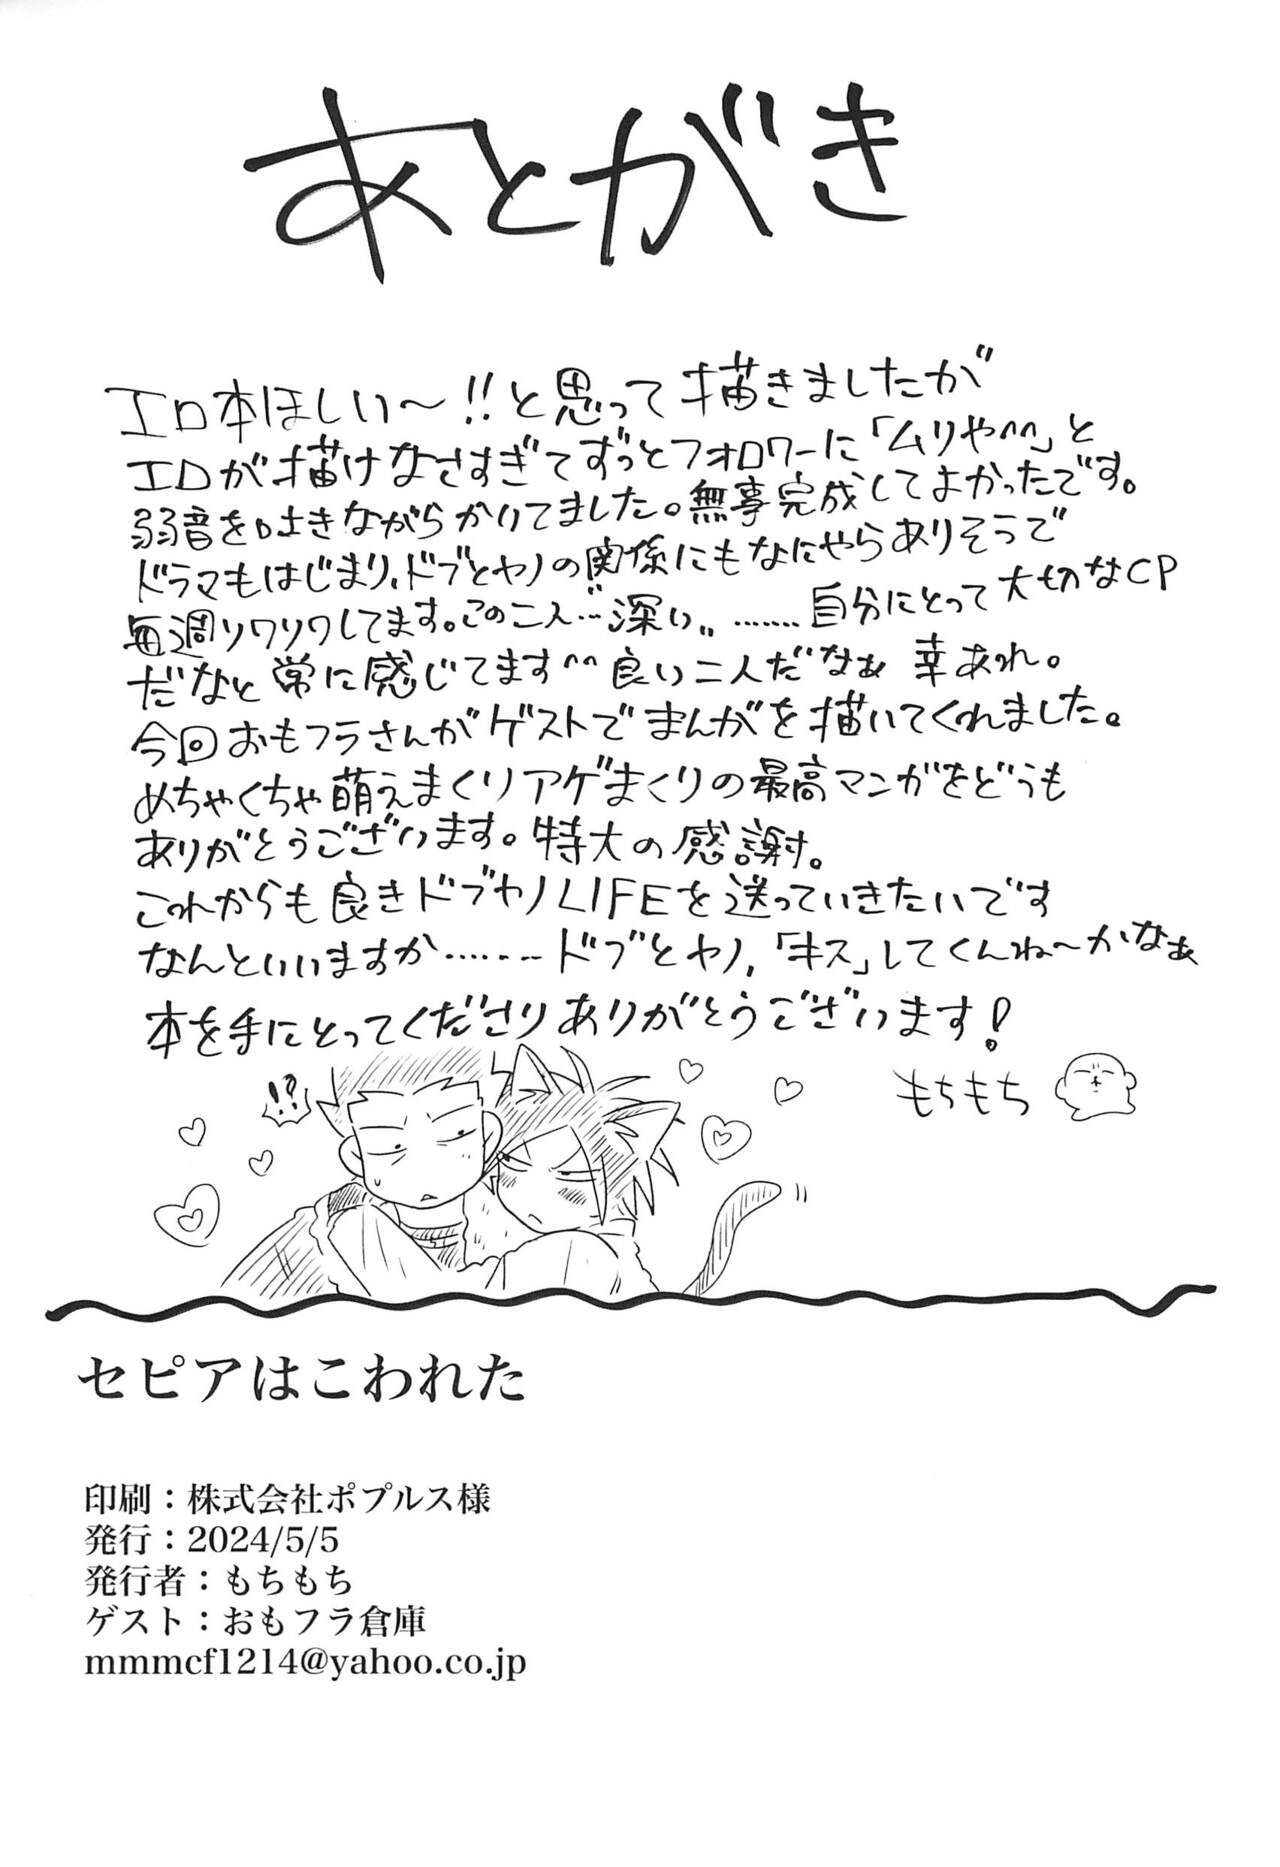 あとがき
エロ本ほしい〜!!と思って描きましたが
エロが描けなさすぎてずっとフォロワーに「ムリや^^」と
弱音を吐きながらかいてました。無事完成してよかったです。
ドラマもはじまり、ドブとヤノの関係にもなにやらありそうで
毎週ソワソワしてます。この二人…"深い"……自分にとって大切なCP
だなと常に感じてます^^良い二人だなぁ 幸あれ。
今回おもフラさんがゲストでまんがを描いてくれました。
めちゃくちゃ萌えまくりアゲまくりの最高マンガをどうも
ありがとうございます。特大の感謝。
これからも良きドブヤノLIFEを送っていきたいです
なんといいますか……ドブとヤノ,「キス」してくんね〜かなぁ
本を手にとってくださりありがとうございます!
もちもち
!?
セピアはこわれた
印刷：株式会社ポプルス様
発行：2024/5/5
発行者：もちもち
ゲスト：おもフラ倉庫
mmmcf1214@yahoo.co.jp